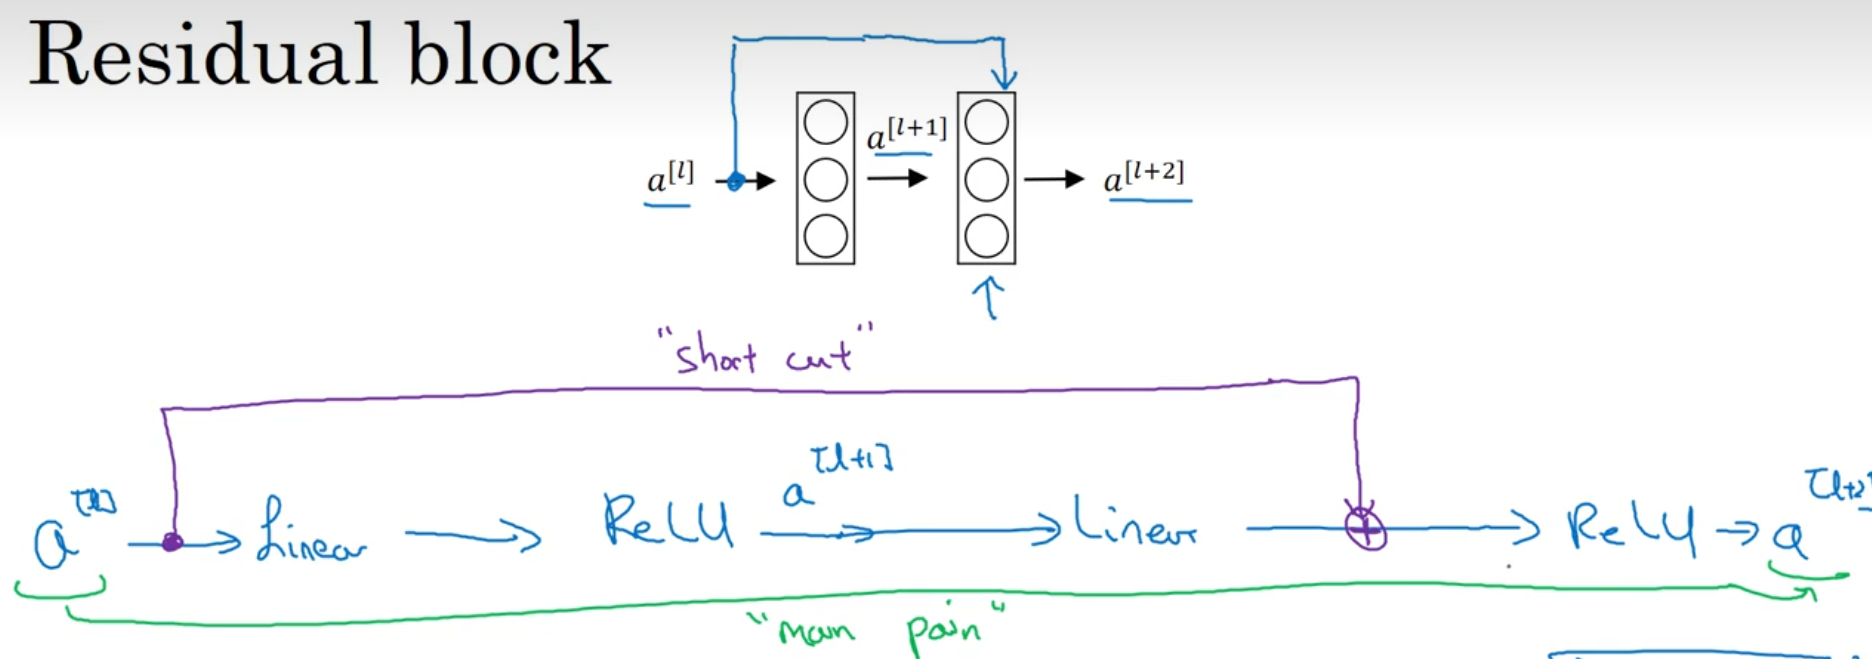 Residual block
a[l] a[l+1] a[l+2]
"short cut"
a[l] Linear ReLU a[l+1] Linear ReLU a[l+2]
"main pain"